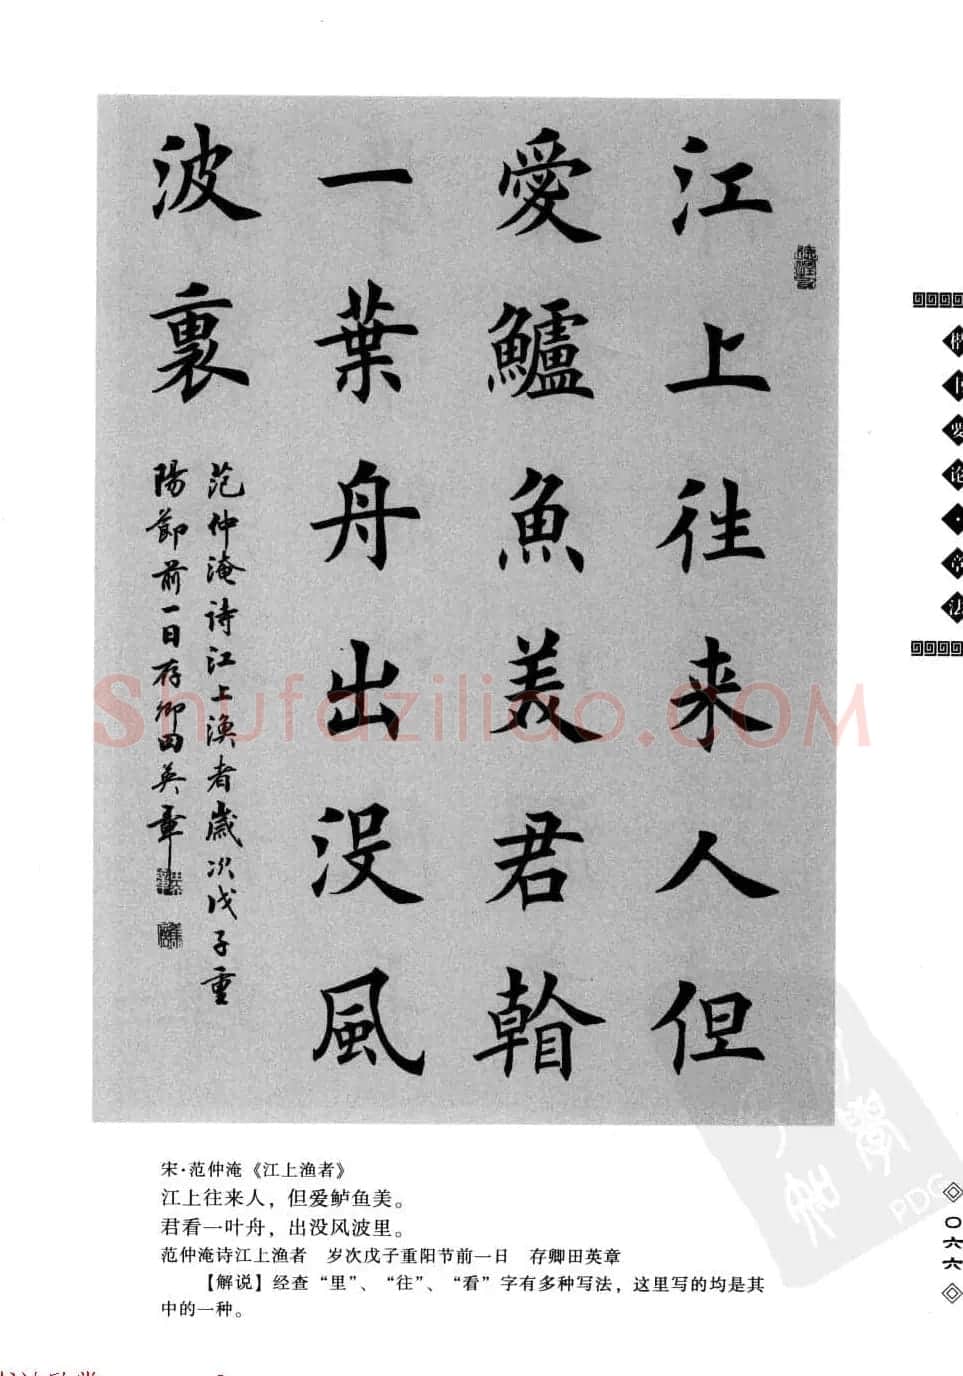 江上往来人但
愛鱸魚美君𦩻
一葉舟出没風
波裏
范仲淹诗江上漁者歲次戊子重
陽節前一日存卿田英章
宋·范仲淹《江上渔者》
江上往来人，但爱鲈鱼美。
君看一叶舟，出没风波里。
范仲淹诗江上渔者　岁次戊子重阳节前一日　存卿田英章
【解说】经查“里”、“往”、“看”字有多种写法，这里写的均是其
中的一种。
要论·
法
〇六六
Shufaziliao.COM
PDG